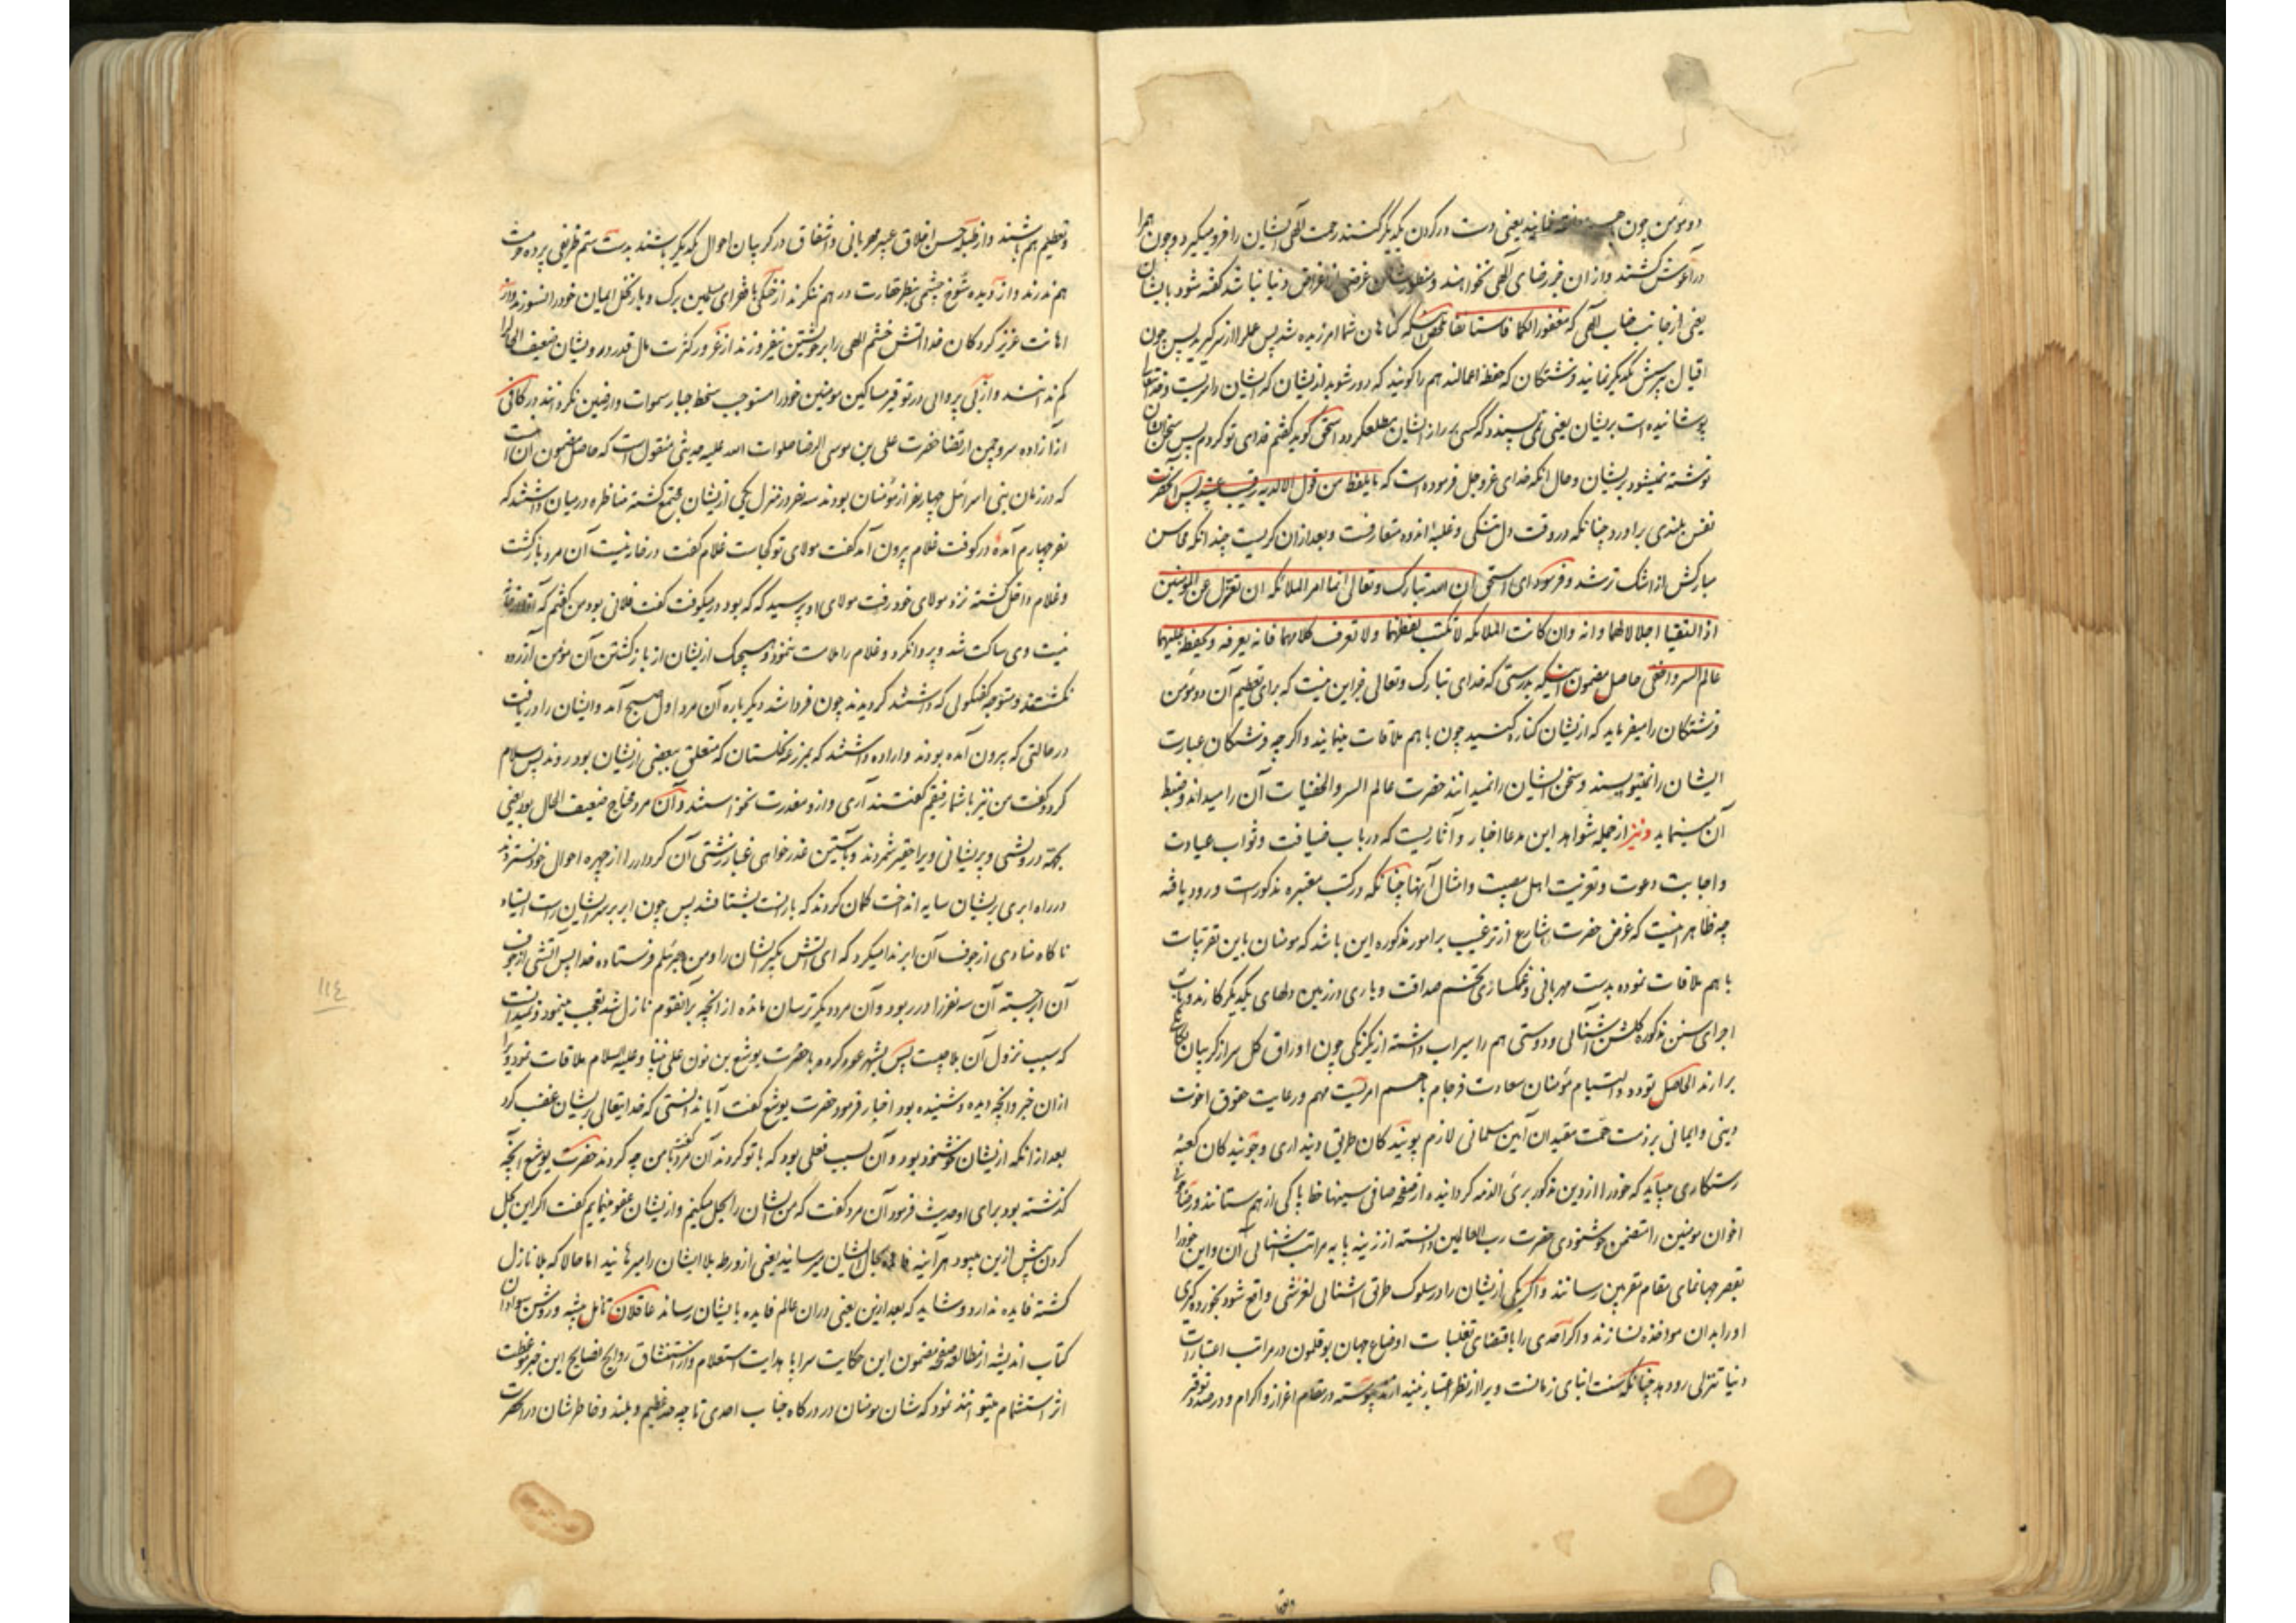 دو مؤمن چون نمایند یعنی دست در گردن یکدیگر کنند رحمت الهی ایشان را فرو میگیرد و چون همرا
در آغوش کشند و از ان جز رضای الهی نخواهند و منظورشان غرضی از اغراض دنیا نباشد گفته شود بایشان
یعنی از جانب جناب الهی که مغفورا لکما فاستانفا محصل آنکه گناهان شما امرزیده شد پس عمل را از سر گیرید پس چون
اقبال بپرسش یکدیگر نمایند فرشتگان که حفظه اعمالند هم را گویند که دور شوید از ایشان که ایشان را سریست و خدایتعالی
پوشانیده است بریشان یعنی نمی پسندد که کسی بر راز ایشان مطلع گردد اسحق گوید گفتم فدای تو گردم پس سخن ایشان
نوشته نمیشود بریشان و حال انکه خدای عز و جل فرموده است که ما یلفظ من قول الا لدیه رقیب عتید پس آنحضرت
نفس بلندی براورد چنانکه در وقت دل تنگی و غلبه اندوه متعارفست و بعد ازان گریست چندانکه محاسن
مبارکش از اشک تر شد و فرمود ای اسحق ان الله تبارک و تعالی انما امر الملائکه ان تعتزل عن المومنین
اذا التقیا اجلالا لهما و انه و ان کانت الملائکه لا تکتب لفظهما و لا تعرف کلامهما فانه یعرفه و یحفظه علیهما
عالم السر و اخفی حاصل مضمون آنکه بدرستی که خدای تبارک و تعالی جز این نیست که برای تعظیم آن دو مؤمن
فرشتگان را میفرماید که از یشان کناره کنید چون با هم ملاقات مینمایند و اگر چه فرشتگان عبارت
ایشان را نمینویسند و سخن ایشان را نمیدانند حضرت عالم السر و الخفیات آن را میداند و ضبط
آن مینماید و نیز از جمله شواهد این مدعا اخبار و آثاریست که در باب ضیافت و ثواب عیادت
و اجابت دعوت و تعزیت اهل مصیبت و امثال آنها چنانکه در کتب معتبره مذکورست ورود یافته
چه ظاهر اینست که غرض حضرت شارع از ترغیب بر امور مذکوره این باشد که مومنان باین تقریبات
با هم ملاقات نموده بدست مهربانی و غمگساری تخم صداقت و یاری در زمین دلهای یکدیگر کارند و بآب
اجرای سنن مذکوره گلشن آشنائی و دوستی هم را سیراب داشته از یکرنگی چون اوراق گل سر از گریبان
برارند الحاصل تودد و التیام مؤمنان سعادت فرجام با هم امریست مهم و رعایت حقوق اخوت
دینی و ایمانی بر ذمت همت مقیدان آیین مسلمانی لازم پویندگان طریق دینداری و جویندگان کعبه
رستگاری میباید که خود را از دین مذکور بری الذمه گردانیده از صفحه صافی سینها خط پاکی از هم ستانند و رضای
اخوان مومنین را متضمن خوشنودی حضرت رب العالمین دانسته از زینه پایه مراتب اشنائی آن و این خود را
بقصر جهانمای مقام مقربین رسانند و اگر یکی از یشان را در سلوک طریق اشنائی لغزشی واقع شود بخورده گیری
او را بدان مواخذه نسازند و اگر احدی را باقتضای تقلبات اوضاع جهان بوقلمون در مراتب اعتبارات
دنیا تنزلی رو دهد چنانکه سنت ابنای زمانست ویرا از نظر اعتبار نیندازند پیوسته در مقام اعزاز و اکرام و در صدد توقیر
وتعظیم
و تعظیم هم باشند و از طبله حسن اخلاق عبیر مهربانی و اشفاق در گریبان احوال یکدیگر پاشند بدست ستم ظریفی پرده حرمت
هم ندرند و از دیده شوخ چشمی بنظر حقارت در هم ننگرند از خنکی با فقرای مسلمین برگ و بار نخل ایمان خود را نسوزند و از
اهانت عزیز کردگان خدا اتش خشم الهی را بر خویشتن نیفروزند از غرور کثرت مال قدر درویشان ضعیف الحال را
کم ندانند و از بی پروائی در توقیر مساکین مومنین خود را مستوجب سخط جبار سموات و ارضین نگردانند در کافی
از آزاده سرو چمن ارتضا حضرت علی بن موسی الرضا صلوات الله علیه حدیثی منقول است که حاصل مضمون آن اینست
که در زمان بنی اسرائیل چهار نفر از مؤمنان بودند سه نفر در منزل یکی از یشان مجتمع گشته مناظره در میان داشتند که
نفر چهارم آمده در کوفت غلام بیرون آمد گفت مولای تو کجاست غلام گفت در خانه نیست آن مرد بازگشت
و غلام داخل گشته نزد مولای خود رفت مولای او پرسید که که بود در میکوفت گفت فلانی بود من گفتم که آقا در خانه
نیست وی ساکت شد و پروا نکرد و غلام را ملامت ننمود و هیچیک از یشان از باز گشتن آن مؤمن آزرده
نگشتند و متوجه گفتگوئی که داشتند گردیدند چون فردا شد دیگر باره آن مرد اول صبح آمد و ایشان را دریافت
در حالتی که بیرون آمده بودند و اراده داشتند که بمزرعه گلستان که متعلق ببعضی از یشان بود روند پس سلام
کرد و گفت من نیز با شما رفیقم گفتند آری و ازو معذرت نخواستند و آن مرد محتاج ضعیف الحال بود یعنی
بجهة درویشی و پریشانی ویرا حقیر شمردند و بآستین عذر خواهی غبار زشتی آن کردار را از چهره احوال خود نستردند
در راه ابری بریشان سایه انداخت گمان کردند که بارانست بشتافتند پس چون ابر بر سر ایشان راست ایستاد
ناگاه منادی از جوف آن ابر ندا میکرد که ای اتش بگیر ایشان را و من جبرئیلم فرستاده خدا پس اتشی از جوف
آن ابر جسته آن سه نفر را در ربود و آن مرد دیگر ترسان مانده از انچه بر آنقوم نازل شد تعجب مینمود و نمیدانست
که سبب نزول آن بلا چیست پس بشهر عود کرده با حضرت یوشع بن نون علی نبینا و علیه السلام ملاقات نمود و ویرا
ازان خبر و انچه دیده و شنیده بود اخبار فرمود حضرت یوشع گفت آیا ندانستی که خدایتعالی بریشان غضب کرد
بعد از انکه از یشان خوشنود بود و آن بسبب فعلی بود که با تو کردند آن مرد گفت با من چه کردند حضرت یوشع انچه
گذشته بود برای او حدیث فرمود آن مرد گفت که من ایشان را بحل میکنم و از یشان عفو مینمایم گفت اگر این بحل
کردن پیش ازین میبود هر آینه فایده بحال ایشان میرسانید یعنی از ورطه بلا ایشان را میرهانید اما حالا که بلا نازل
گشته فایده ندارد و شاید که بعد ازین یعنی دران عالم فایده بایشان رساند عاقلان تامل پیشه و روشن سوادان
کتاب اندیشه از مطالعه صفحه مضمون این حکایت سراپا هدایت استعلام و از استنشاق روایح نصایح این خبر موعظت
اثر استشمام میتوانند نمود که شان مومنان در درگاه جناب احدی تا چه حد عظیم و بلند و خاطر شان در آنحضرت
١١٤